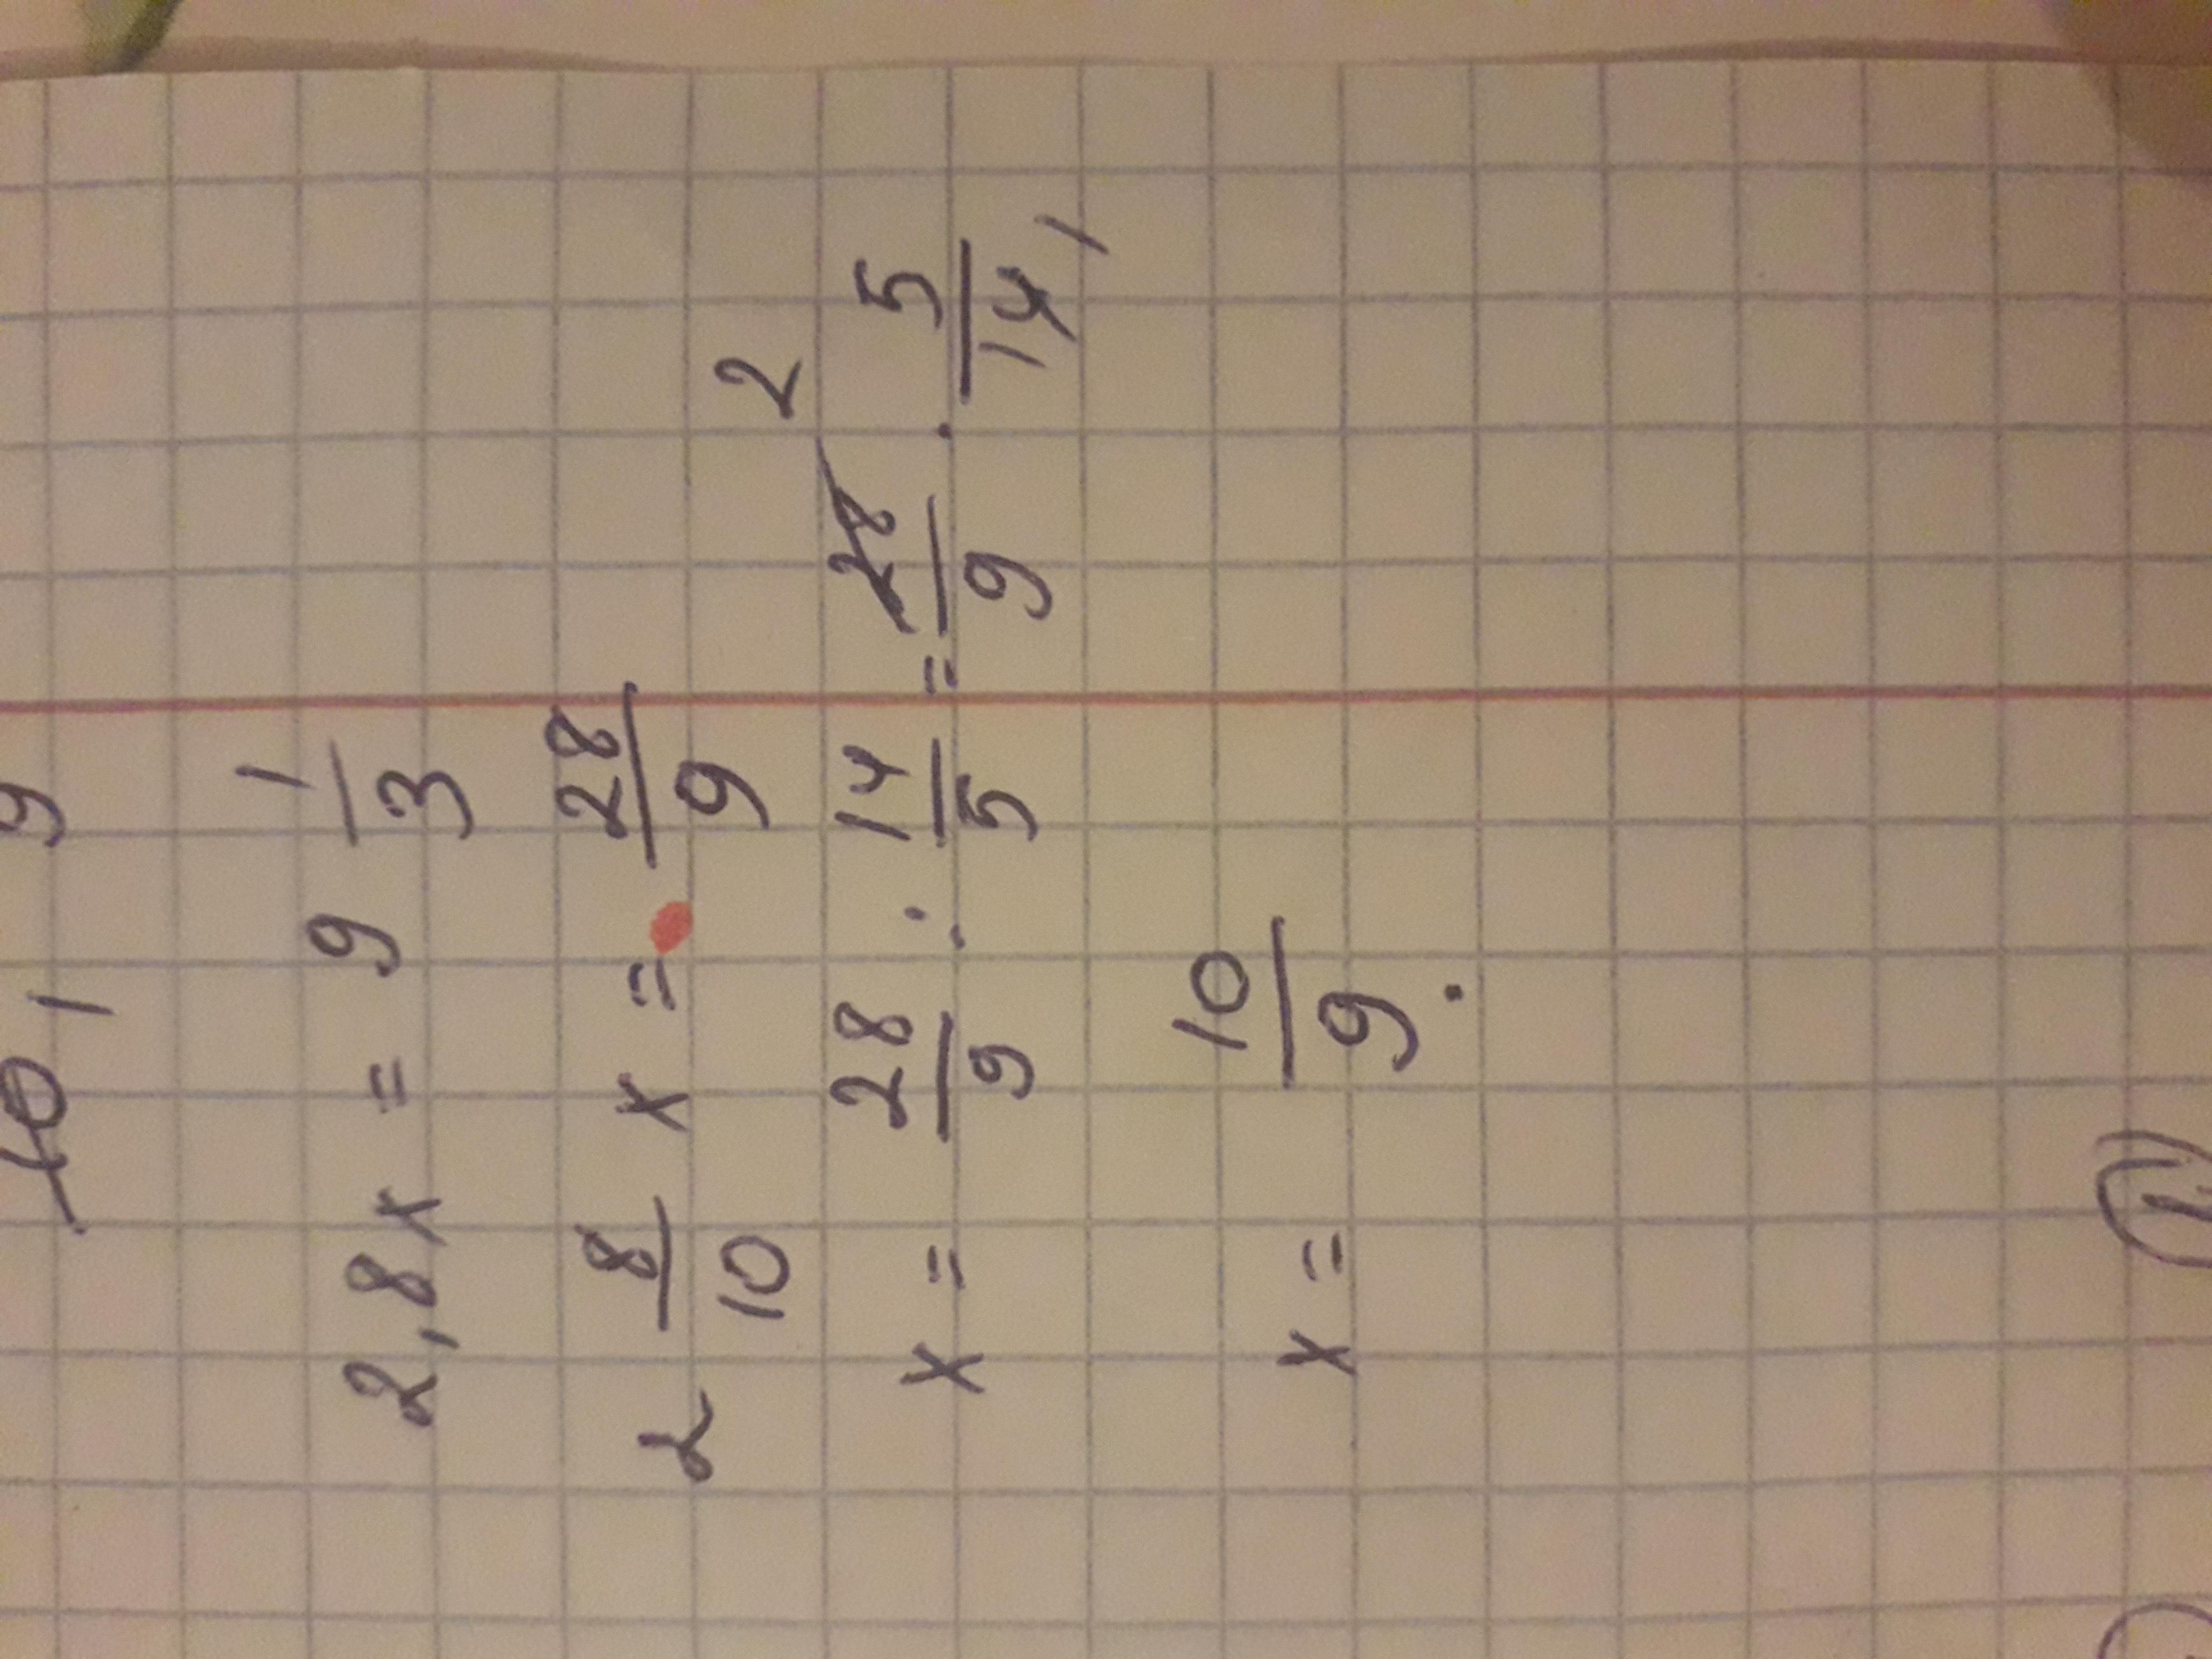 10 1 9
2,8x = 9 1/3
2 8/10 x = 28/9
x = 28/9 : 14/5 = 28/9 · 5/14 2 1
x = 10/9.